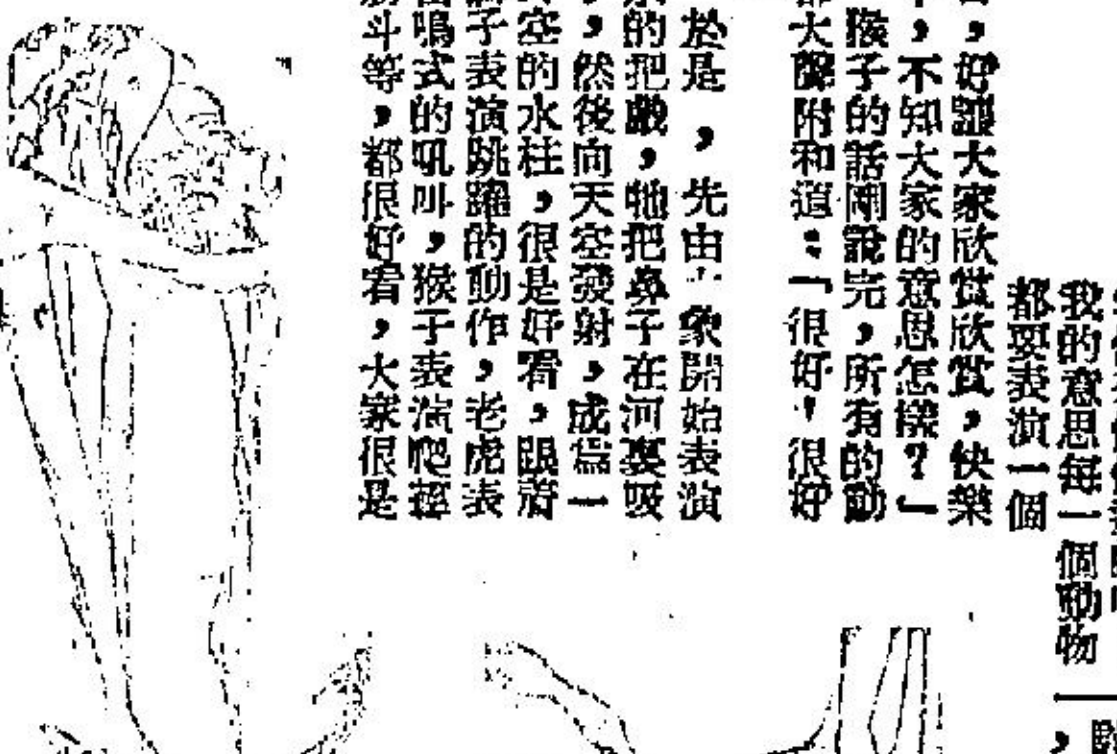 我的意思每一個動物
都要表演一個
，好讓大家欣賞欣賞，快樂
，不知大家的意思怎樣？」
猴子的話剛說完，所有的動
大聲附和道：「很好！很好
於是，先由大象開始表演
的把戲，牠把鼻子在河裏吸
，然後向天空發射，成爲一
空的水柱，很是好看，跟着
子表演跳躍的動作，老虎表
鳴式的吼叫，猴子表演爬
斗等，都很好看，大家很是